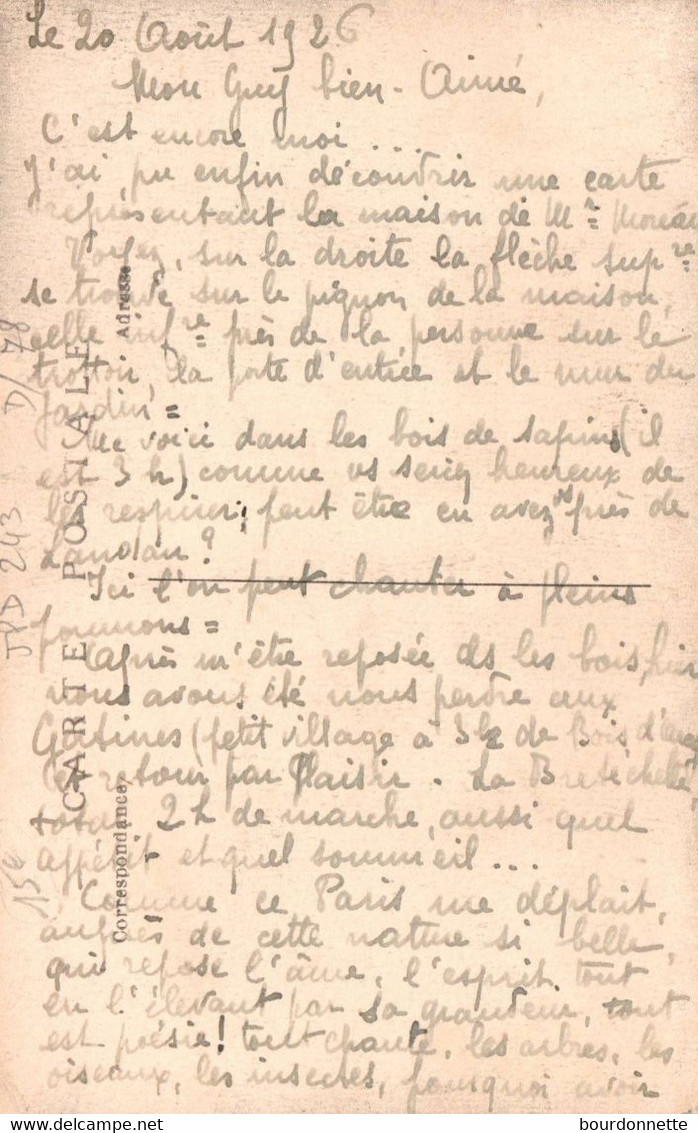 Le 20 Août 1926
Mon Guy bien-Aimé,
C'est encore moi ...
J'ai pu enfin découvrir une carte
représentant la maison de Mr
sur la droite la flèche supre
se trouve sur le pignon de la maison,
celle infre près de la personne sur le
trottoir, la porte d'entrée et le mur du
jardin =
Me voici dans les bois de sapins (il
est 3 h) comme vs seriez heureux de
les respirer, peut être en avez vs près de
Landau ?
Ici l'on peut chanter à pleins
poumons =
Après m'être reposée ds les bois, hier
nous avons été nous perdre aux
Gatines (petit village à 3k de Bois d'arcy
et retour par Plaisir. La Bretéchelle
total 2h de marche, aussi quel
appétit et quel sommeil ...
Comme ce Paris me déplait,
auprès de cette nature si belle,
qui repose l'âme, l'esprit tout
en l'élevant par sa grandeur, tout
est poésie ! tout chante, les arbres, les
oiseaux, les insectes, pourquoi avoir
CARTE POSTALE
Correspondance
Adresse
JPD 243
D/78
15e
bourdonnette